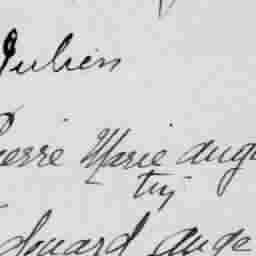 Julien
Pierre Marie Augu
tin
Edouard Ange